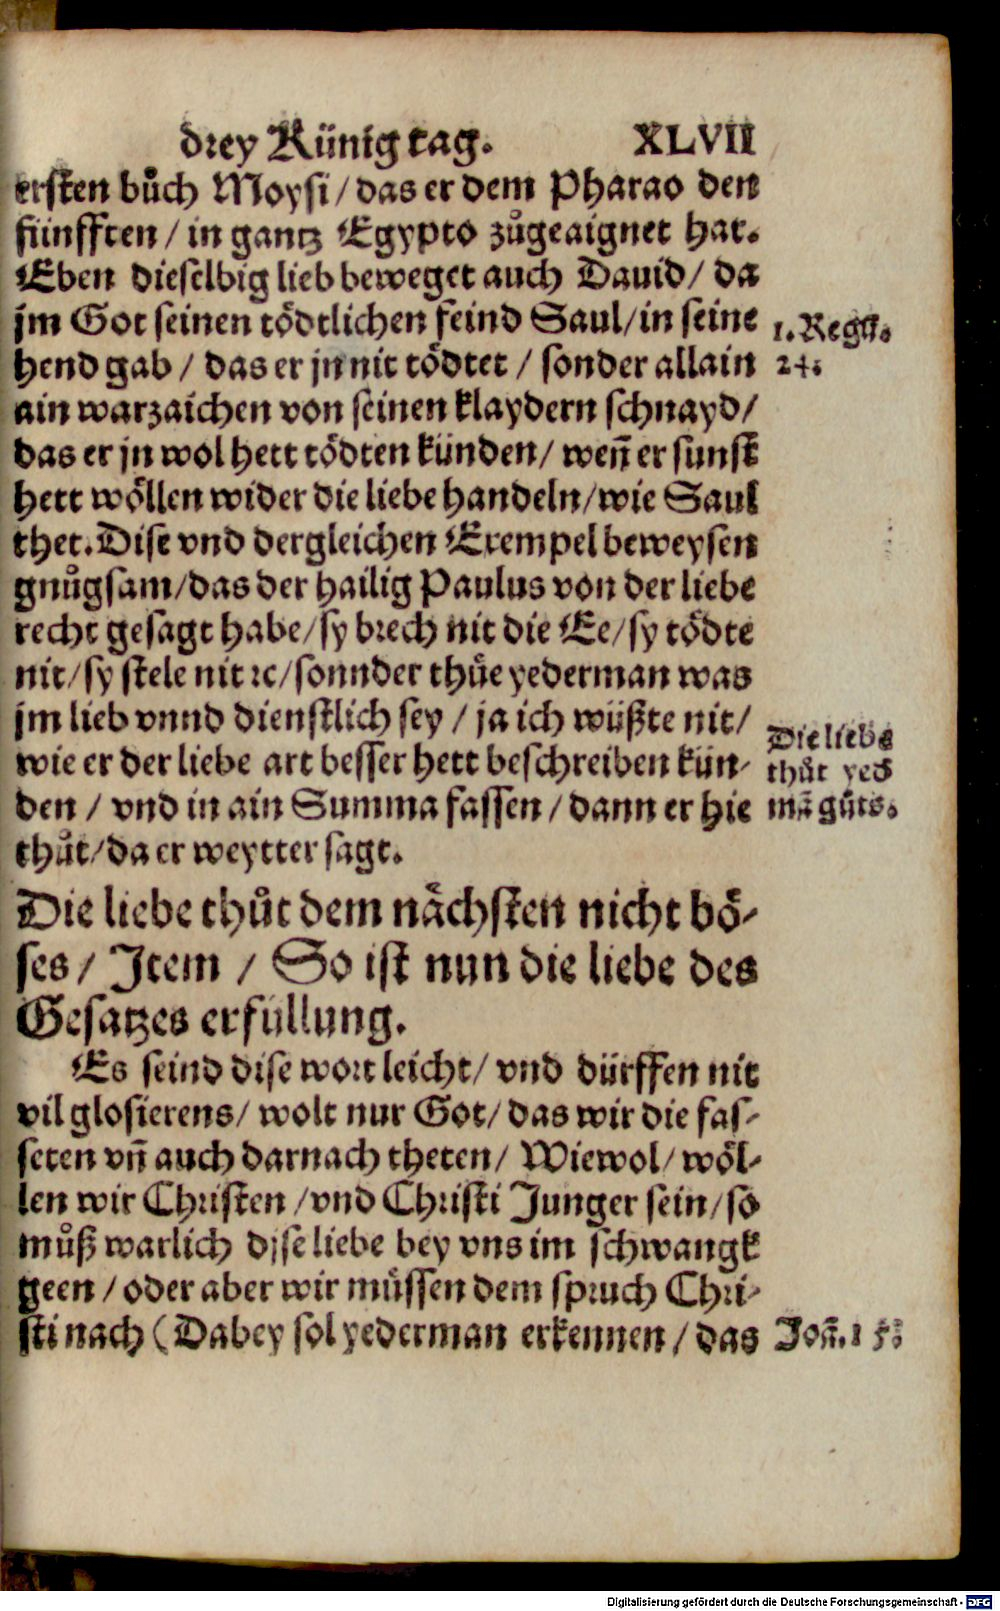 drey Künig tag. XLVII
ersten bůch Moysi / das er dem Pharao den
fünfften / in gantz Egypto zůgeaignet hat.
Eben dieselbig lieb beweget auch Dauid / da
jm Got seinen tödtlichen feind Saul / in seine
1. Regũ.
24.
hend gab / das er jn nit tödtet / sonder allain
ain warzaichen von seinen klaydern schnayd /
das er jn wol hett tödten künden / weñ er sunst
hett wöllen wider die liebe handeln / wie Saul
thet. Dise vnd dergleichen Exempel beweysen
gnůgsam / das der hailig Paulus von der liebe
recht gesagt habe / sy brech nit die Ee / sy tödte
nit / sy stele nit ꝛc / sonnder thüe yederman was
jm lieb vnnd dienstlich sey / ja ich wüßte nit /
Die liebe
thůt yed
mã gůts.
wie er der liebe art besser hett beschreiben kün-
den / vnd in ain Summa fassen / dann er hie
thůt / da er weytter sagt.
Die liebe thůt dem nächsten nicht bö-
ses / Item / So ist nun die liebe des
Gesatzes erfüllung.
Es seind dise wort leicht / vnd dürffen nit
vil glosierens / wolt nur Got / das wir die fas-
seten vñ auch darnach theten / Wiewol / wöl-
len wir Christen / vnd Christi Junger sein / so
můß warlich dise liebe bey vns im schwangk
geen / oder aber wir müssen dem spruch Chri-
sti nach (Dabey sol yederman erkennen / das
Joã. 15.
Digitalisierung gefördert durch die Deutsche Forschungsgemeinschaft - DFG